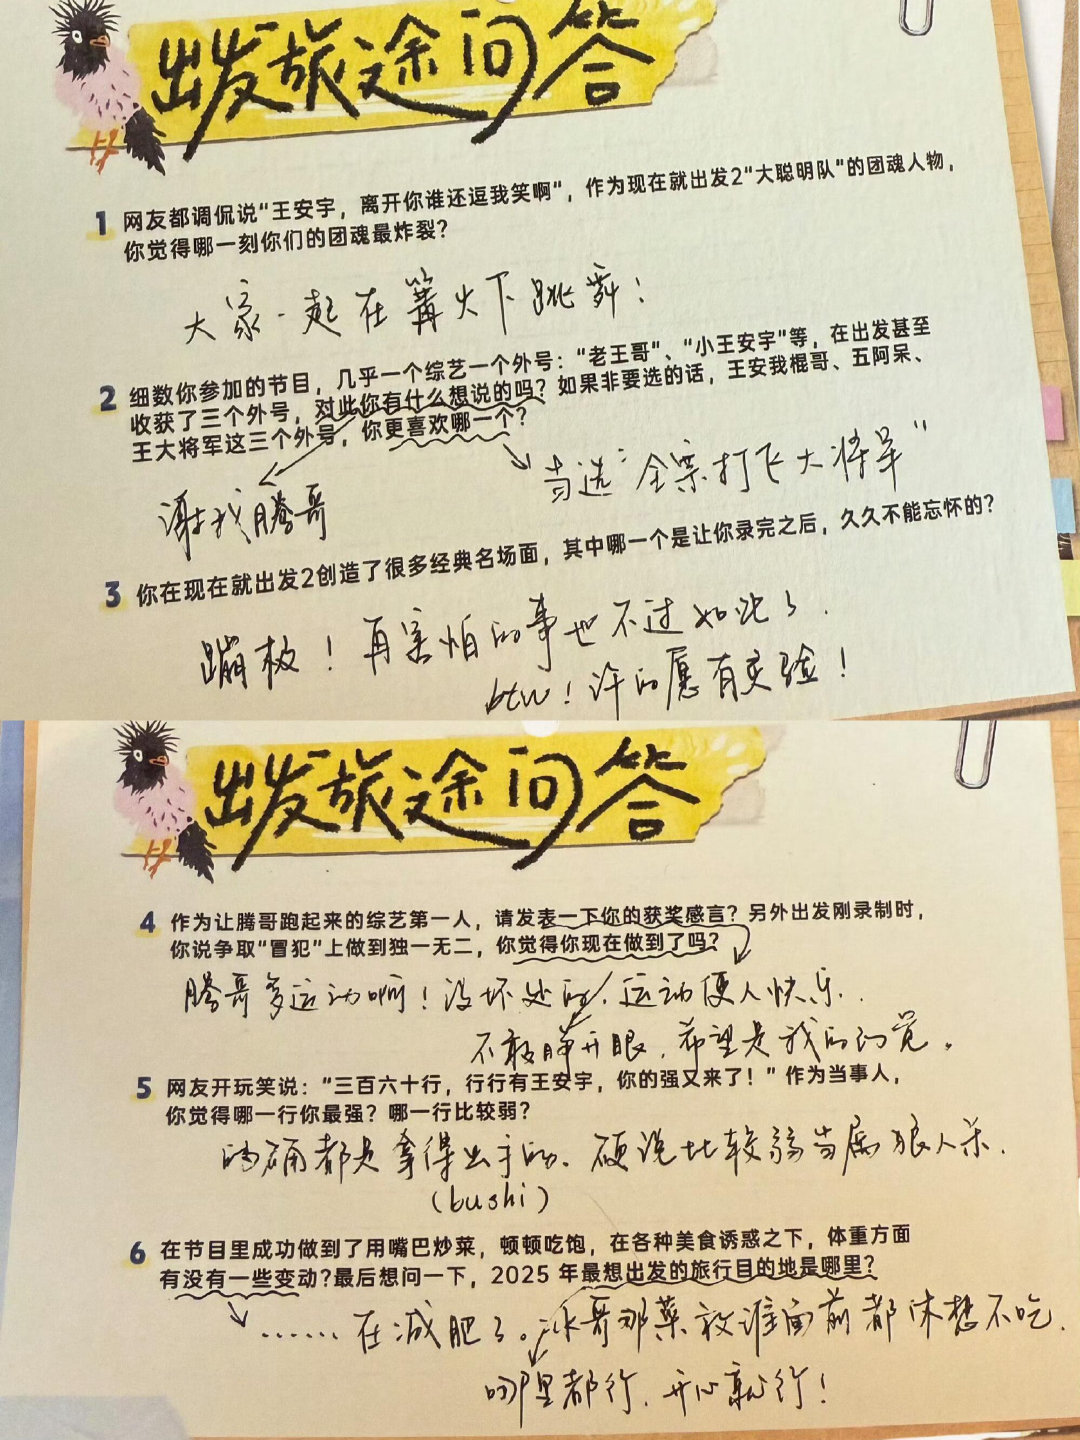 出发旅途问答
1 网友都调侃说“王安宇，离开你谁还逗我笑啊”，作为现在就出发2“大聪明队”的团魂人物，
你觉得哪一刻你们的团魂最炸裂？
大家一起在篝火下跳舞！
2 细数你参加的节目，几乎一个综艺一个外号：“老王哥”、“小王安宇”等，在出发甚至
收获了三个外号，对此你有什么想说的吗？如果非要选的话，王安我棍哥、五阿呆、
王大将军这三个外号，你更喜欢哪一个？
当选“全票打飞大将军”
谢我腾哥
3 你在现在就出发2创造了很多经典名场面，其中哪一个是让你录完之后，久久不能忘怀的？
蹦极！再害怕的事也不过如此了.
btw！许的愿有灵验！
出发旅途问答
4 作为让腾哥跑起来的综艺第一人，请发表一下你的获奖感言？另外出发刚录制时，
你说争取“冒犯”上做到独一无二，你觉得你现在做到了吗？
腾哥多运动啊！没坏处的.运动使人快乐..
不敢睁开眼.希望是我的幻觉。
5 网友开玩笑说：“三百六十行，行行有王安宇，你的强又来了！”作为当事人，
你觉得哪一行你最强？哪一行比较弱？
的确都是拿得出手的.硬说比较弱当属狼人杀.
(bushi)
6 在节目里成功做到了用嘴巴炒菜，顿顿吃饱，在各种美食诱惑之下，体重方面
有没有一些变动？最后想问一下，2025 年最想出发的旅行目的地是哪里？
......在减肥了。冰哥那菜放谁面前都休想不吃.
哪里都行.开心就行！